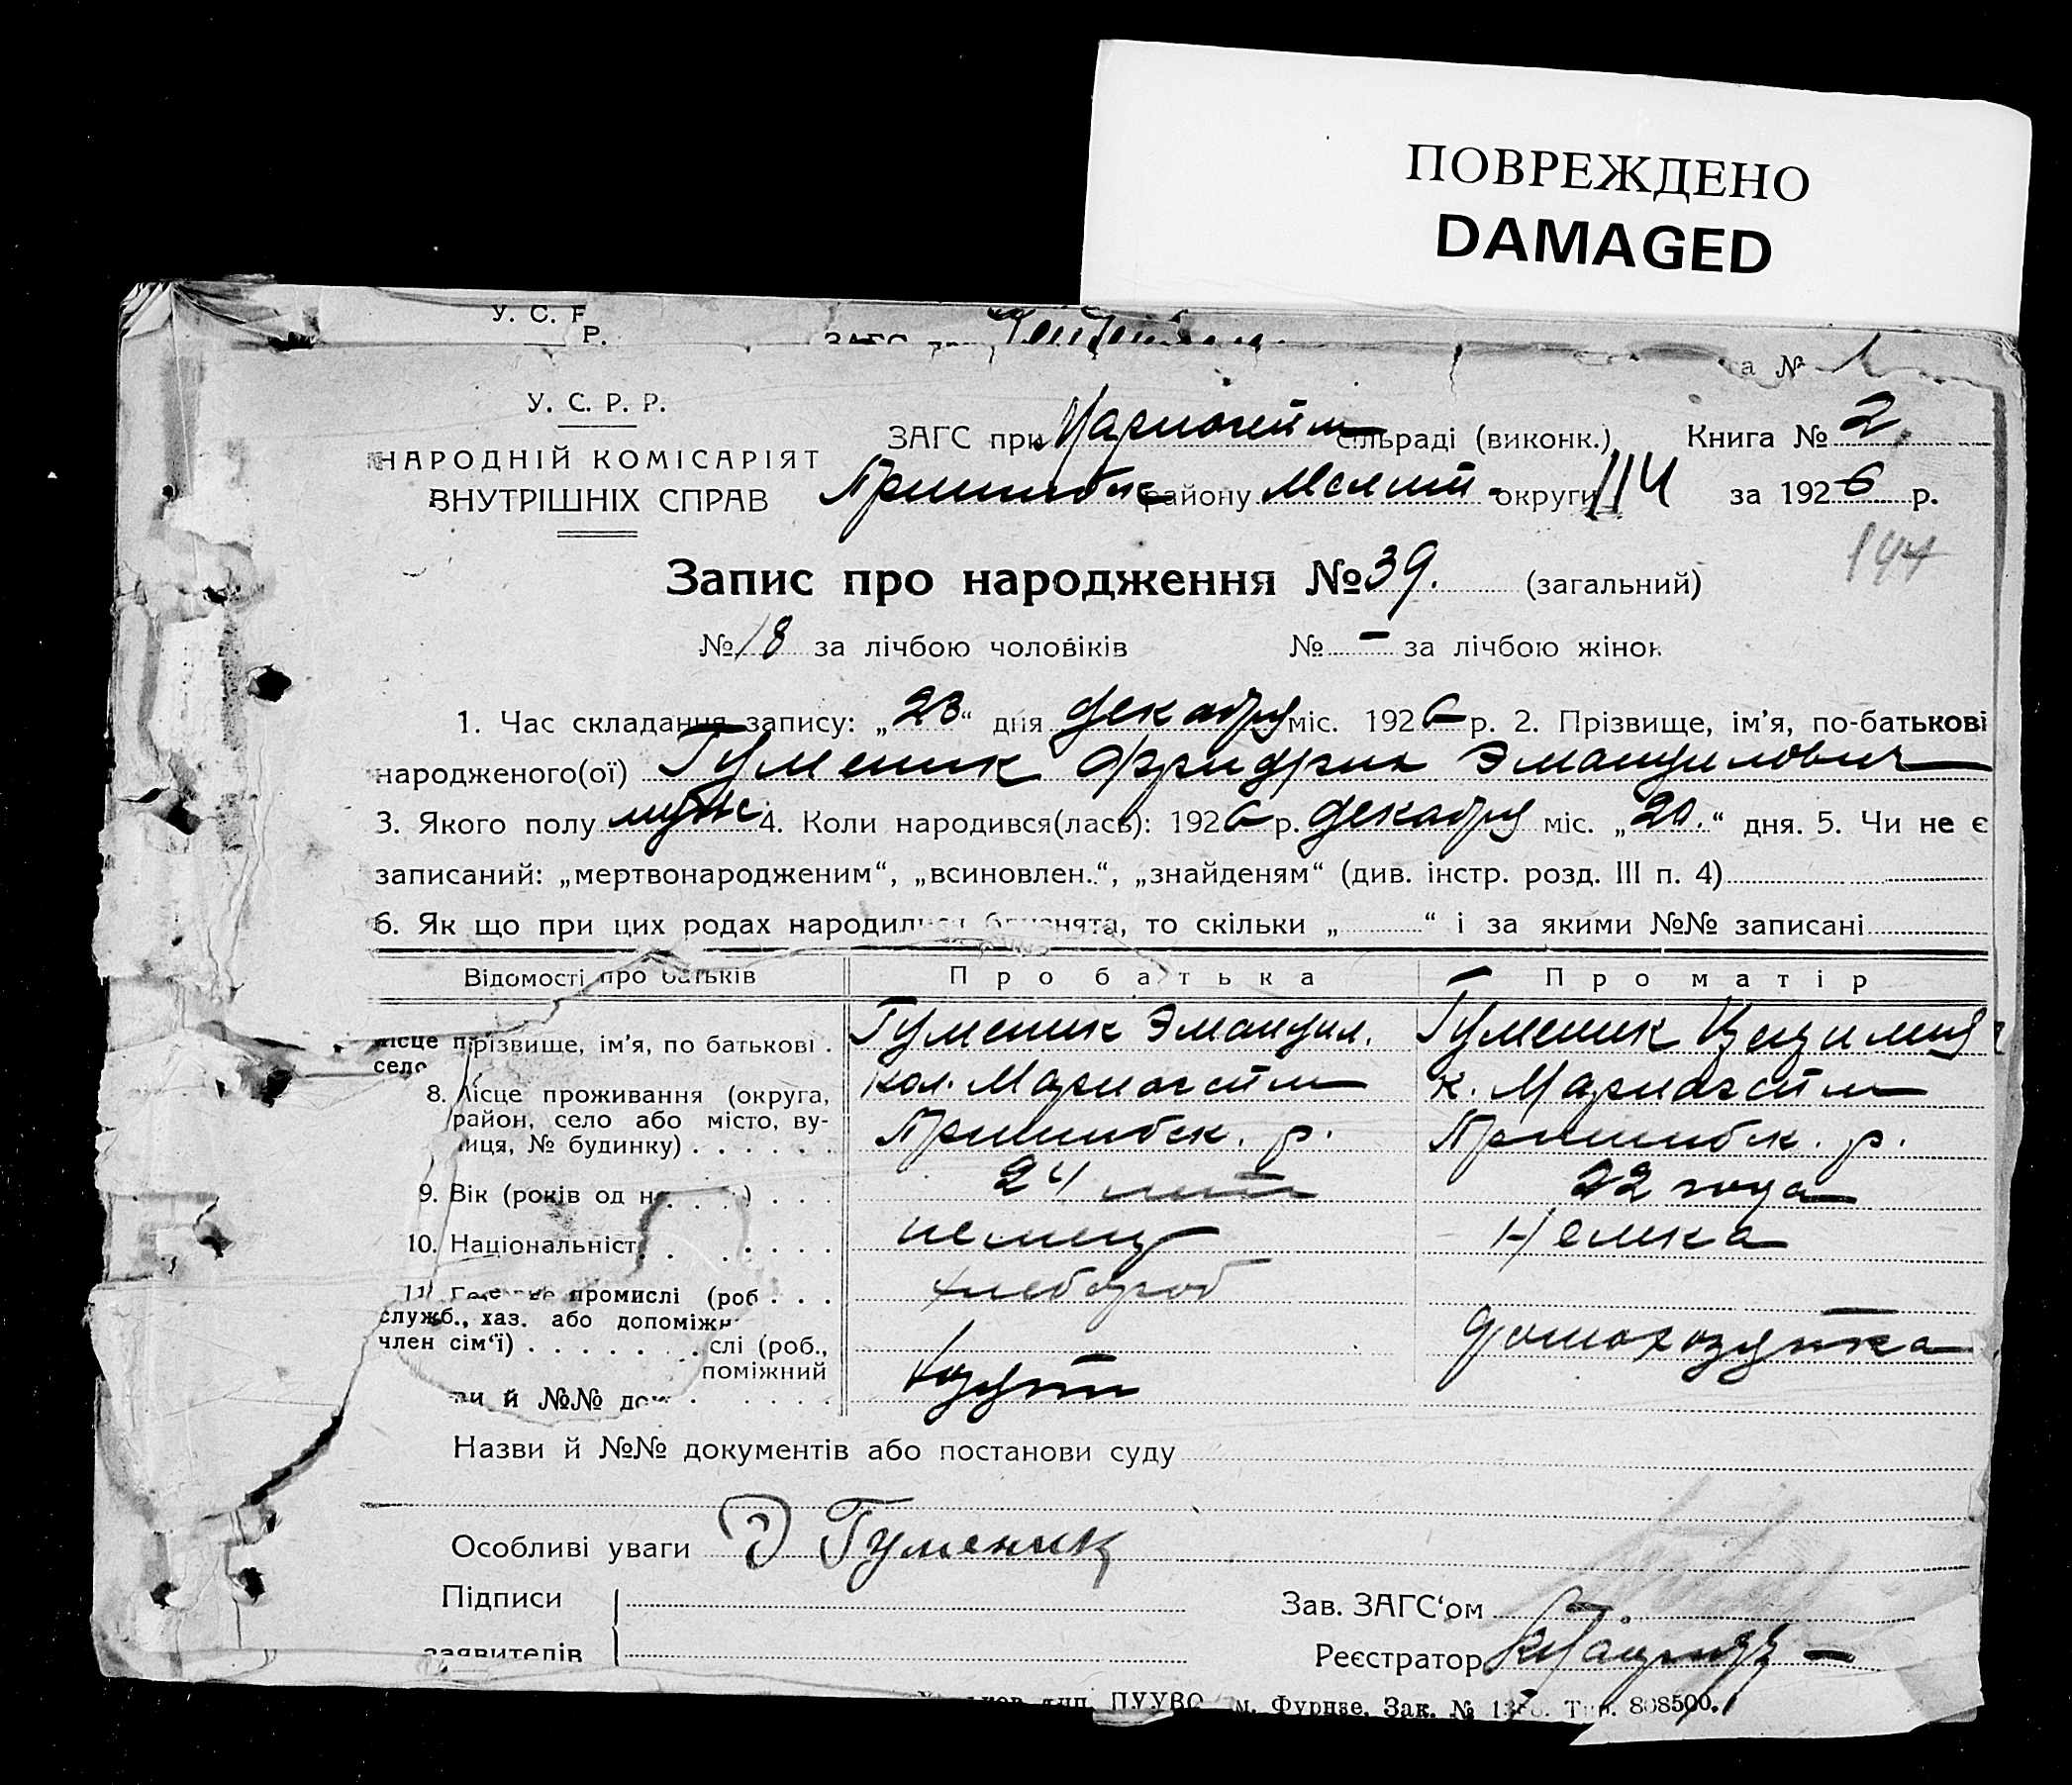 ПОВРЕЖДЕНО
DAMAGED
У. С. Р.
ЗАГС
а №
У. С. Р. Р.
НАРОДНІЙ КОМІСАРІЯТ
ВНУТРІШНІХ СПРАВ
ЗАГС при Мариогейм сільраді (виконк.) Книга № 2
Пришибск району Мелит. округи 114 за 1926 р.
144
Запис про народження № 39. (загальний)
№ 18 за лічбою чоловіків № – за лічбою жінок
1. Час складання запису: „23“ дня декабря міс. 1926 р. 2. Прізвище, ім’я, по-батькові
народженого(ої) Гуменик Фридрих Эмануилович
3. Якого полу муж 4. Коли народився(лась): 1926 р. декабря міс. „20.“ дня. 5. Чи не є
записаний: „мертвонародженим“, „всиновлен..“, „знайденям“ (див. інстр. розд. III п. 4)
6. Як що при цих родах народилися близнята, то скільки „ “ і за якими №№ записані
Відомості про батьків Про батька Про матір
прізвище, ім’я, по батькові . Гуменик Эмануил. Гуменик
8. Місце проживання (округа, кол. Мариогейм к. Мариогейм
район, село або місто, ву-
лиця, № будинку) . . . . . . Пришибск. р. Пришибск. р.
9. Вік (років од н ) . . . 24 лет 22 года
10. Національніст . . . . . немец Немка
11. промислі (роб . . . хлебороб
служб., хаз. або допоміжн
член сім‘ї) . . . . . . . слі (роб., домохозяйка
поміжний
ви й №№ док . . . . . хозяин
Назви й №№ документів або постанови суду
Особливі уваги Э Гуменик
Підписи Зав. ЗАГС‘ом
заявителів Реєстратор
ПУУВО м. Фрунзе. Зак. № Тир. 808500.